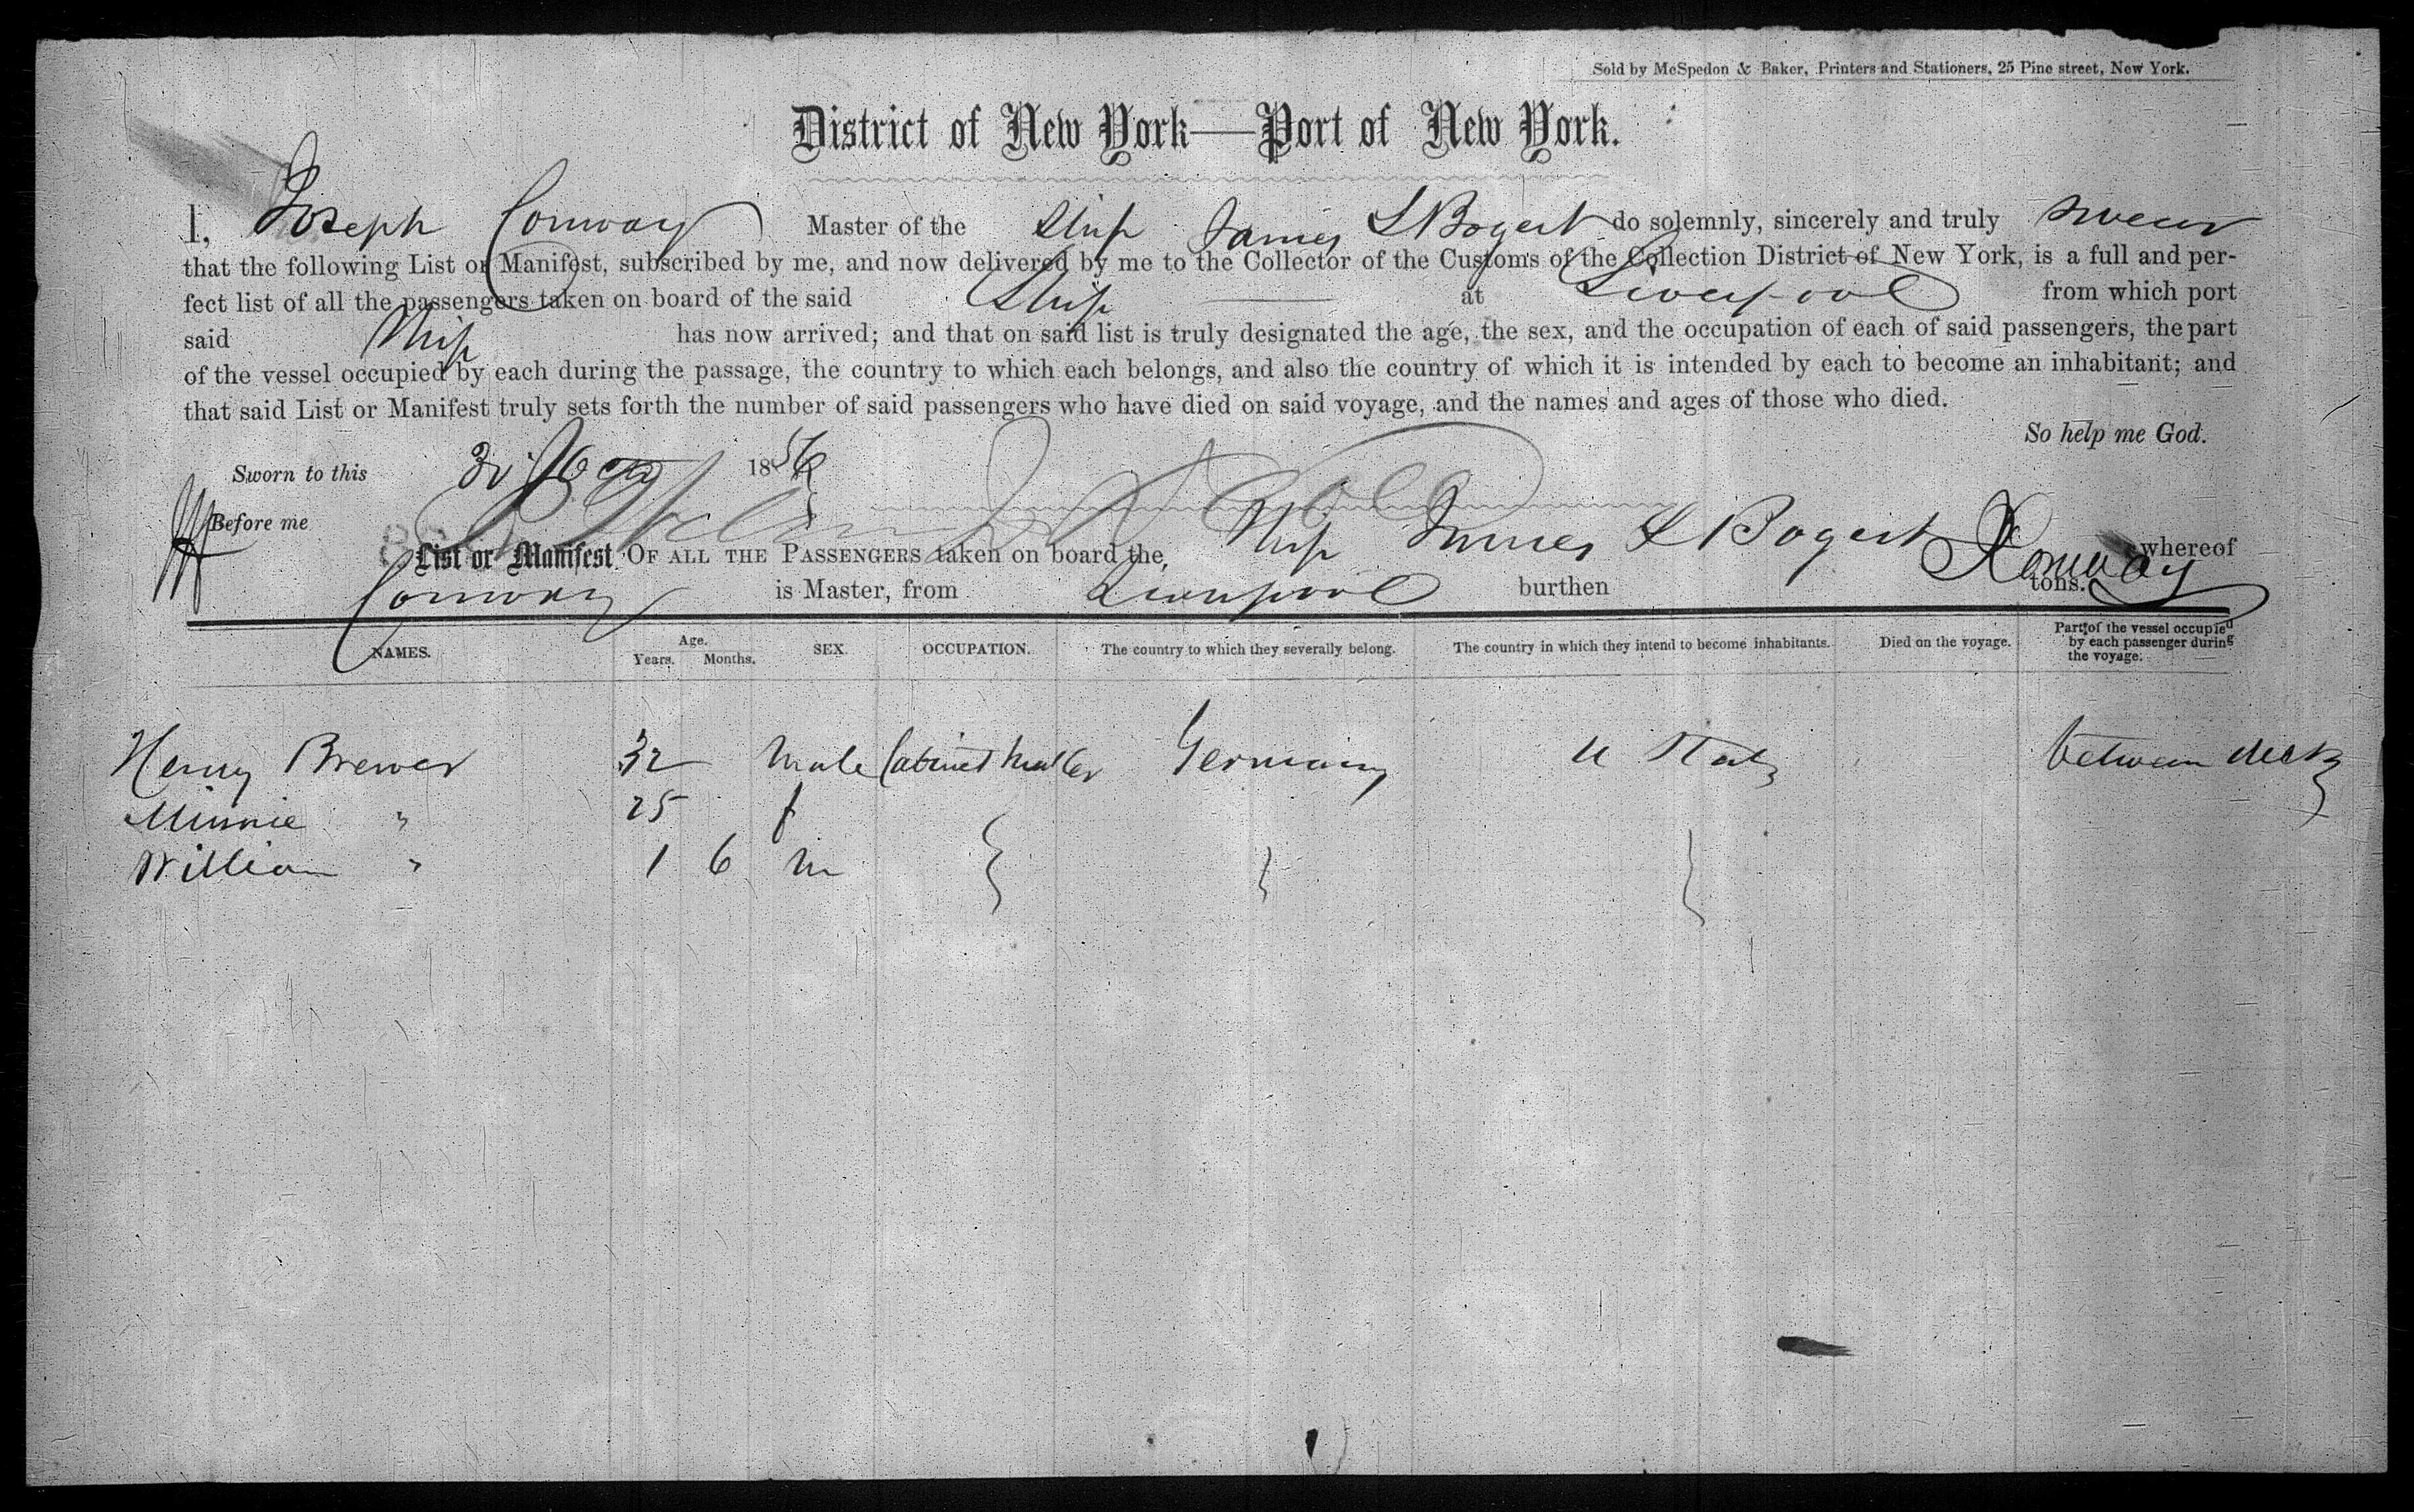 Sold by McSpedon & Baker, Printers and Stationers, 25 Pine street, New York.
District of New York—Port of New York.
I, Joseph Conway Master of the Ship James L Bogert do solemnly, sincerely and truly swear
that the following List or Manifest, subscribed by me, and now delivered by me to the Collector of the Customs of the Collection District of New York, is a full and per-
fect list of all the passengers taken on board of the said Ship at Liverpool from which port
said Ship has now arrived; and that on said list is truly designated the age, the sex, and the occupation of each of said passengers, the part
of the vessel occupied by each during the passage, the country to which each belongs, and also the country of which it is intended by each to become an inhabitant; and
that said List or Manifest truly sets forth the number of said passengers who have died on said voyage, and the names and ages of those who died.
So help me God.
Sworn to this 1856
Before me
List or Manifest OF ALL THE PASSENGERS taken on board the, Ship James L Bogert whereof
Conway is Master, from Liverpool burthen tons. Conway
NAMES. Age. Years. Months. SEX. OCCUPATION. The country to which they severally belong. The country in which they intend to become inhabitants. Died on the voyage. Part of the vessel occupied by each passenger during the voyage.
Henry Brewer 32 Male Cabinet Maker Germany U States between decks
Minnie " 25 f
William " 1 6 m